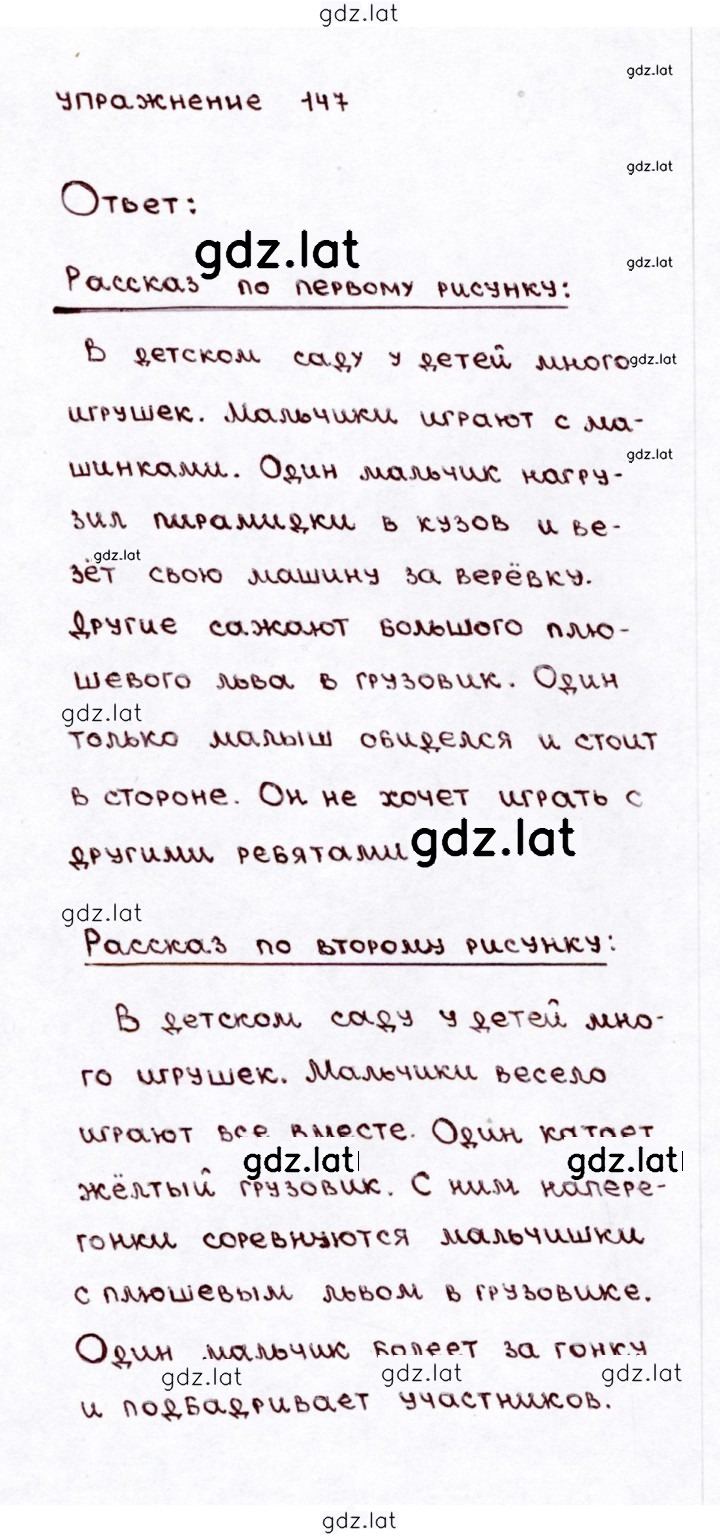 gdz.lat
gdz.lat
упражнение 147
gdz.lat
Ответ:
gdz.lat
gdz.lat
Рассказ по первому рисунку:
В детском саду у детей много
gdz.lat
игрушек. Мальчики играют с ма-
gdz.lat
шинками. Один мальчик нагру-
зил пирамидки в кузов и ве-
gdz.lat
зёт свою машину за верёвку.
Другие сажают большого плю-
шевого льва в грузовик. Один
gdz.lat
только малыш обиделся и стоит
в стороне. Он не хочет играть с
другими ребятами
gdz.lat
gdz.lat
Рассказ по второму рисунку:
В детском саду у детей мно-
го игрушек. Мальчики весело
играют все вместе. Один катает
gdz.lat
gdz.lat
жёлтый грузовик. С ним напере-
гонки соревнуются мальчишки
с плюшевым львом в грузовике.
Один мальчик болеет за гонку
gdz.lat
gdz.lat
gdz.lat
и подбадривает участников.
gdz.lat